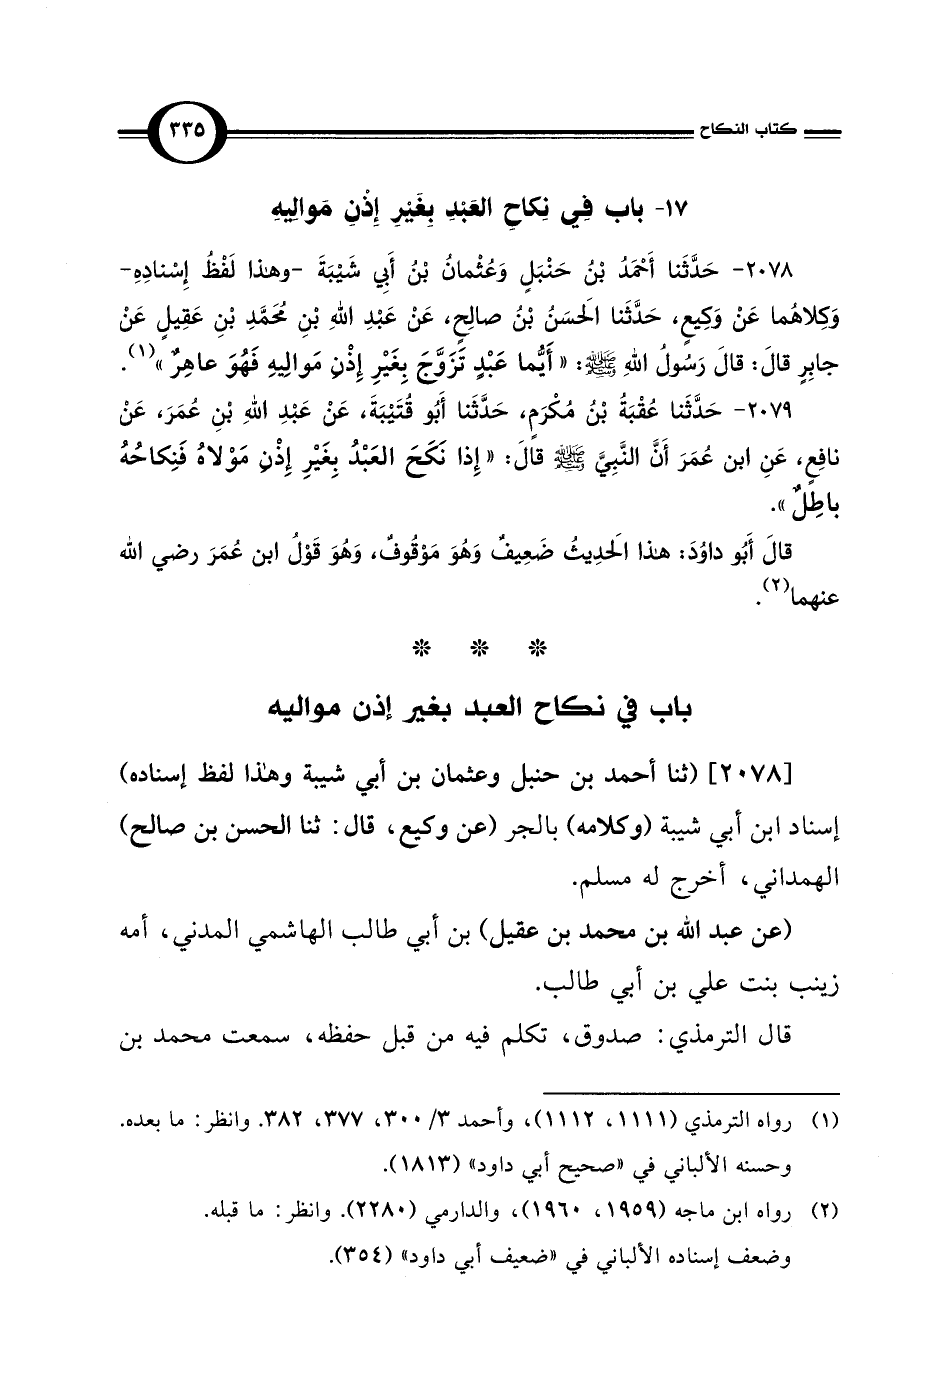 كتاب النكاح ٣٣٥
١٧- باب فِي نِكاحِ العَبْدِ بِغَيْرِ إِذْنِ مَوالِيهِ
٢٠٧٨- حَدَّثَنا أَحْمَدُ بْنُ حَنْبَلٍ وَعُثْمانُ بْنُ أَبِي شَيْبَةَ -وهٰذا لَفْظُ إِسْنادِهِ-
وَكِلاهُما عَنْ وَكِيعٍ، حَدَّثَنا الحَسَنُ بْنُ صالِحٍ، عَنْ عَبْدِ اللهِ بْنِ مُحَمَّدِ بْنِ عَقِيلٍ عَنْ
جابِرٍ قالَ: قالَ رَسُولُ اللهِ ﷺ: « أَيُّما عَبْدٍ تَزَوَّجَ بِغَيْرِ إِذْنِ مَوالِيهِ فَهُوَ عاهِرٌ »(١).
٢٠٧٩- حَدَّثَنا عُقْبَةُ بْنُ مُكْرَمٍ، حَدَّثَنا أَبُو قُتَيْبَةَ، عَنْ عَبْدِ اللهِ بْنِ عُمَرَ، عَنْ
نافِعٍ، عَنِ ابن عُمَرَ أَنَّ النَّبِيَّ ﷺ قالَ: « إِذا نَكَحَ العَبْدُ بِغَيْرِ إِذْنِ مَوْلاهُ فَنِكاحُهُ
باطِلٌ ».
قالَ أَبُو داوُدَ: هٰذا الحَدِيثُ ضَعِيفٌ وَهُوَ مَوْقُوفٌ، وَهُوَ قَوْلُ ابن عُمَرَ رضي الله
عنهما(٢).
* * *
باب في نكاح العبد بغير إذن مواليه
[٢٠٧٨] (ثنا أحمد بن حنبل وعثمان بن أبي شيبة وهٰذا لفظ إسناده)
إسناد ابن أبي شيبة (وكلامه) بالجر (عن وكيع، قال: ثنا الحسن بن صالح)
الهمداني، أخرج له مسلم.
(عن عبد الله بن محمد بن عقيل) بن أبي طالب الهاشمي المدني، أمه
زينب بنت علي بن أبي طالب.
قال الترمذي: صدوق، تكلم فيه من قبل حفظه، سمعت محمد بن
(١) رواه الترمذي (١١١١، ١١١٢)، وأحمد ٣/ ٣٠٠، ٣٧٧، ٣٨٢. وانظر: ما بعده.
وحسنه الألباني في «صحيح أبي داود» (١٨١٣).
(٢) رواه ابن ماجه (١٩٥٩، ١٩٦٠)، والدارمي (٢٢٨٠). وانظر: ما قبله.
وضعف إسناده الألباني في «ضعيف أبي داود» (٣٥٤).